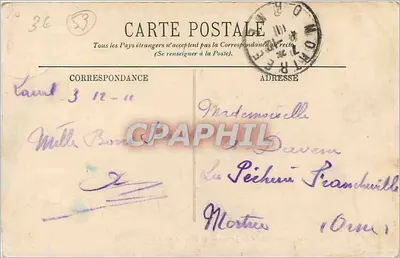 36 53
CARTE POSTALE
Tous les Pays étrangers n'acceptent pas la Correspondance au recto
(Se renseigner à la Poste).
MORTRÉE ORNE
CORRESPONDANCE
ADRESSE
Laval 3 12-11
Mademoiselle
Mille
CPAPHIL
La Pêcherie Francheville
Mortrée (Orne)